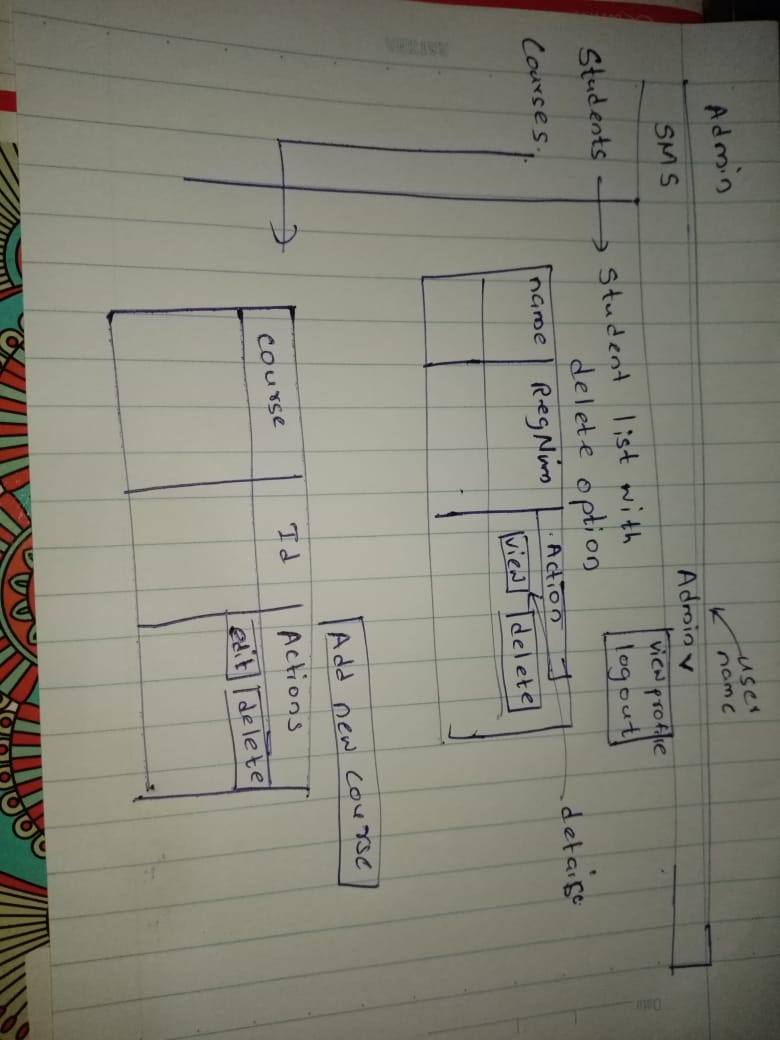 Admin
user
name
SMS
Admin v
view profile
logout
Students
Student list with
delete option
Courses.
details
name
RegNum
Action
view
delete
Add new course
course
Id
Actions
edit
delete